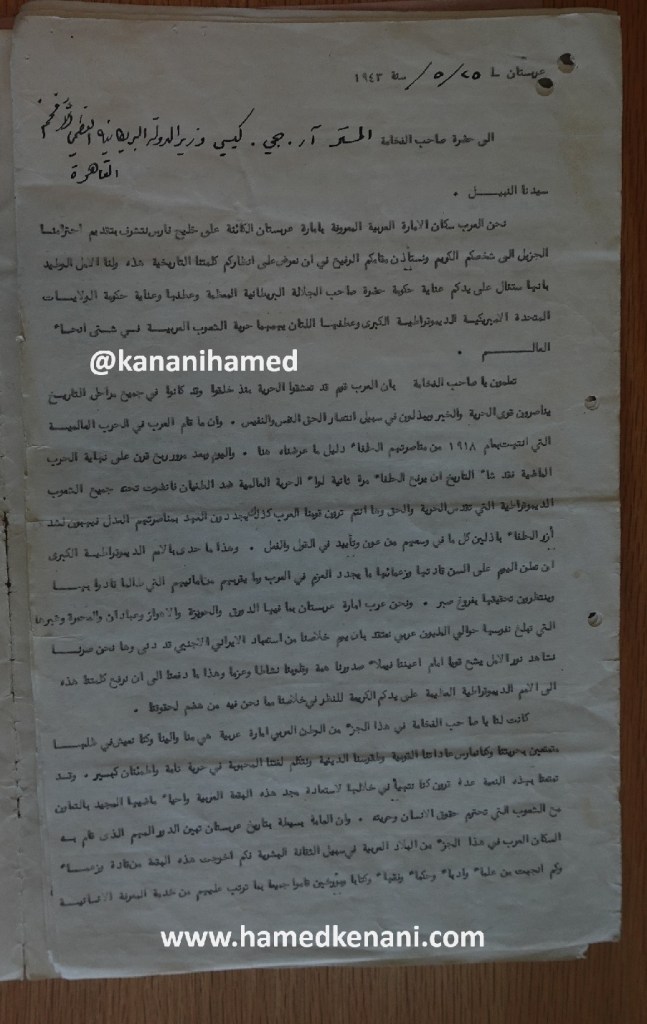 عربستان في ٢٥/٥/ سنة ١٩٤٣
الى حضرة صاحب الفخامة المستر آر. جي. كيسي وزير الدولة البريطانية العظمى الأفخم
القاهرة
سيدنا النبيل .
نحن العرب سكان الامارة العربية المعروفة بامارة عربستان الكائنة على خليج فارس نتشرف بتقديم احترامنا
الجزيل الى شخصكم الكريم ونستأذن مقامكم الرفيع في ان نعرض على انظاركم كلمتنا التاريخية هذه ولنا الامل الوطيد
بانها ستنال على يدكم عناية حكومة حضرة صاحب الجلالة البريطانية المعظمة وعطفها وعناية حكومة الولايات
المتحدة الاميريكية الديموقراطية الكبرى وعطفها اللتان يهمهما حرية الشعوب العربية في شتى انحاء
العالم .
@kananihamed
تعلمون يا صاحب الفخامة بان العرب قوم قد تعشقوا الحرية منذ خلقوا وقد كانوا في جميع مراحل التاريخ
يناصرون قوى الحرية والخير ويبذلون في سبيل انتصار الحق النفس والنفيس . وان ما قام العرب في الحرب العالمية
التي انتهت بعام ١٩١٨ من مناصرتهم الحلفاء دليل ما عرضناه هنا . واليوم وبعد مرور ربع قرن على نهاية الحرب
الماضية فقد شاء التاريخ ان يرفع الحلفاء مرة ثانية لواء الحرية العالمية ضد الطغيان فانضوت تحته جميع الشعوب
الديموقراطية التي تقدس الحرية والحق وها انتم ترون قومنا العرب كذلك يجددون العهد بمناصرتهم العدل فيهبون لشد
أزر الحلفاء باذلين كل ما في وسعهم من عون وتأييد في القول والفعل . وهذا ما حدى بالامم الديموقراطية الكبرى
ان تعلن اليوم على السن قادتها وزعمائها ما يجدد العزم في العرب وما يقربهم من امانيهم التي طالما نادوا بها
وينتظرون تحقيقها بفروغ صبر . ونحن عرب امارة عربستان بما فيها الدورق والحويزة والاهواز وعبادان والمحمرة وغيرها
التي تبلغ نفوسها حوالي المليون عربي نعتقد بان يوم خلاصنا من استعباد الايراني الاجنبي قد دنى وها نحن صرنا
نشاهد نور الامل يشع قويا امام اعيننا فيملاء صدورنا همة وقلوبنا نشاطا وعزما وهذا ما دفعنا الى ان نرفع كلمتنا هذه
الى الامم الديموقراطية العالمية على يدكم الكريمة للنظر في خلاصنا مما نحن فيه من هضم لحقوقنا .
كانت لنا يا صاحب الفخامة في هذا الجزء من الوطن العربي امارة عربية هي منا والينا وكنا نعيش في ظلها
متمتعين بحريتنا وكنا نمارس عاداتنا القومية وطقوسنا الدينية ونتكلم لغتنا المحبوبة في حرية تامة واطمئنان كبير . وقد
تمتعنا بهذه النعمة عدة قرون كنا نتهيأ في خلالها لاستعادة مجد هذه البقعة العربية واحياء ماضيها المجيد بالتعاون
مع الشعوب التي تحترم حقوق الانسان وحريته . وان المامة بسيطة بتاريخ عربستان تبين الدور المهم الذى قام به
السكان العرب في هذا الجزء من البلاد العربية في سبيل الثقافة البشرية فكم اخرجت هذه البقعة من قادة وزعماء
وكم انجبت من علماء وادباء وحكماء وفقهاء وكتاب ومؤرخين قاموا جميعا بما ترتب عليهم من خدمة المعرفة الانسانية
www.hamedkenani.com